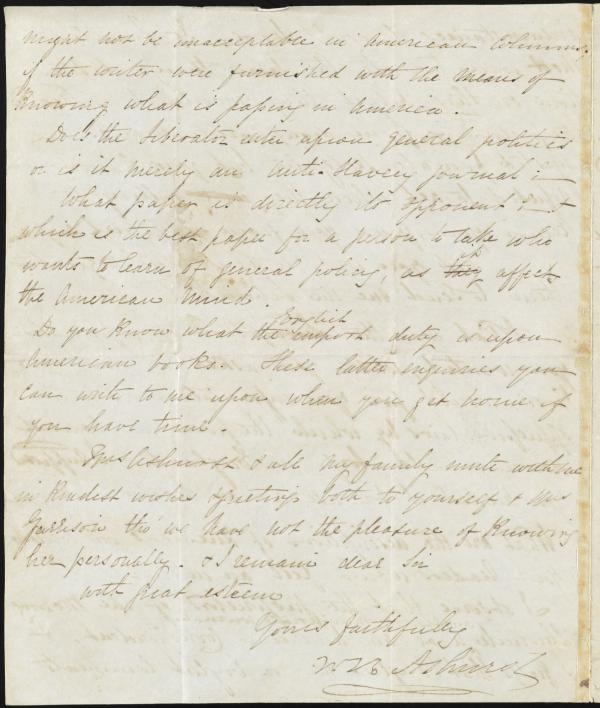 might not be unacceptable in American Columns.
if the writer were furnished with the means of
Knowing what is passing in America.
Does the Liberator enter upon general politics
or is it merely an Anti-Slavery journal? —
What paper is directly its opponent? &
which is the best paper for a person to take who
wants to learn of general policy, as it affects
the American mind.
Do you Know what the English import duty is upon
American books. These latter inquiries you
can write to me upon when you get home if
you have time.
Mrs Ashurst & all my family unite with me
in Kindest wishes & greetings both to yourself & Mrs
Garrison tho' we have not the pleasure of Knowing
her personally. & I remain dear Sir
with great esteem
Yours faithfully
W H Ashurst